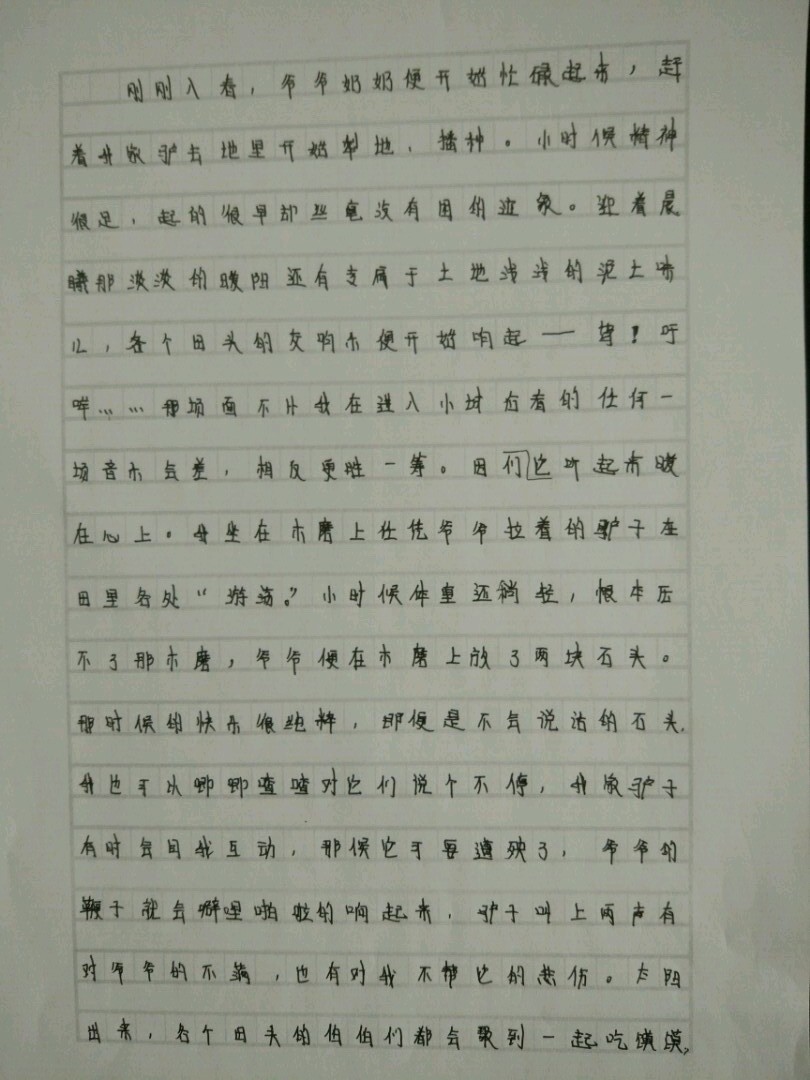 刚刚入春，爷爷奶奶便开始忙碌起来，赶
着我家驴去地里开始犁地、播种。小时候精神
很足，起的很早却丝毫没有困的迹象。迎着晨
曦那淡淡的暖阳还有专属于土地浅浅的泥土味
儿，各个田头的交响乐便开始响起——驾！吁
哞……那场面不比我在进入小城后看的任何一
场音乐会差，相反更胜一筹。因们它听起来暖
在心上。我坐在木磨上任凭爷爷拉着的驴子在
田里各处“游荡。”小时候体重还稍轻，恨本压
不了那木磨，爷爷便在木磨上放了两块石头。
那时候的快乐很纯粹，即便是不会说话的石头，
我也可以唧唧喳喳对它们说个不停，我家驴子
有时会回我互动，那候它可要遭殃了，爷爷的
鞭子就会噼哩啪啦的响起来，驴子叫上两声有
对爷爷的不满，也有对我不帮它的悲伤。太阳
出来，各个田头的伯伯们都会聚到一起吃馍馍，